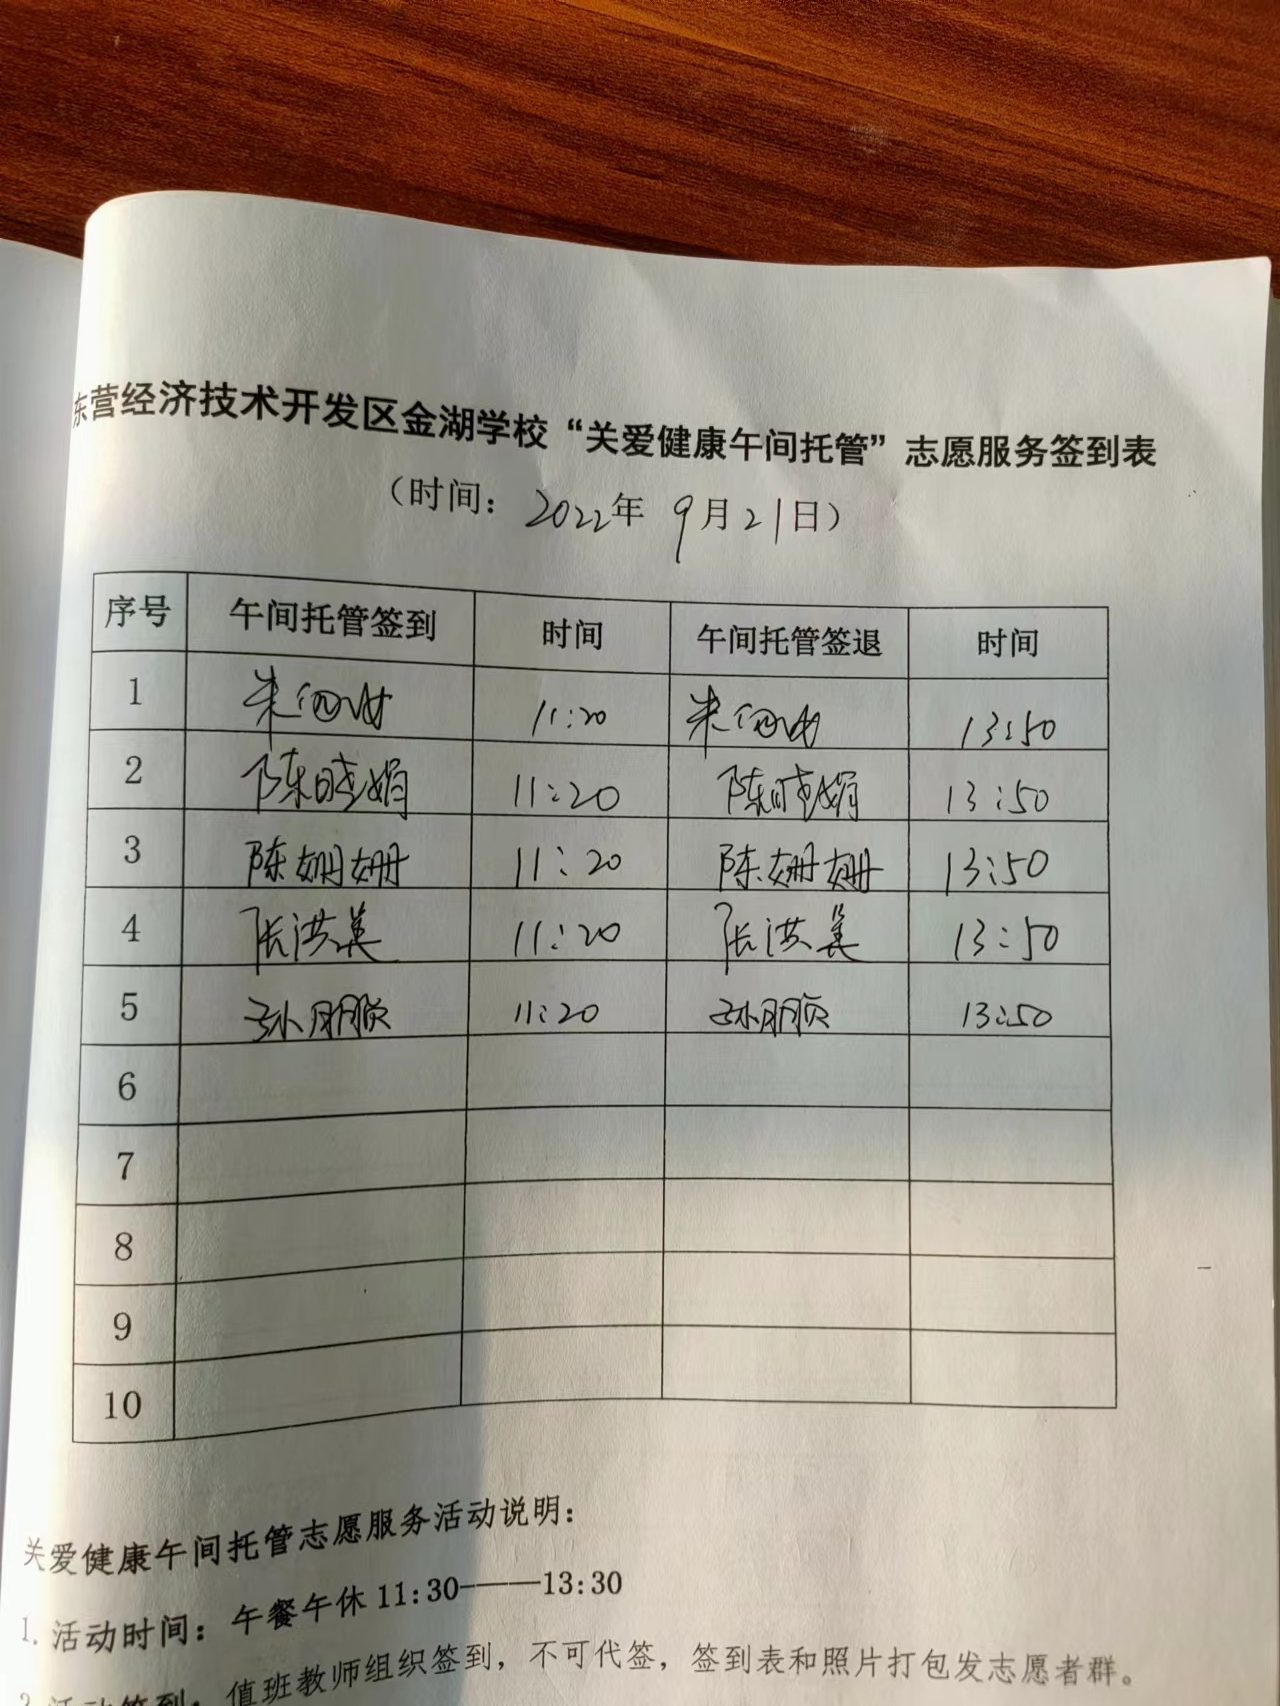 东营经济技术开发区金湖学校“关爱健康午间托管”志愿服务签到表
（时间：2022年 9月21日）
序号 午间托管签到 时间 午间托管签退 时间
1 11:20 13:50
2 陈晓娟 11:20 陈晓娟 13:50
3 陈姗姗 11:20 陈姗姗 13:50
4 张洪美 11:20 张洪美 13:50
5 孙朋顺 11:20 孙朋顺 13:50
6
7
8
9
10
关爱健康午间托管志愿服务活动说明：
1. 活动时间：午餐午休 11:30-——13:30
2. 活动签到：值班教师组织签到，不可代签，签到表和照片打包发志愿者群。